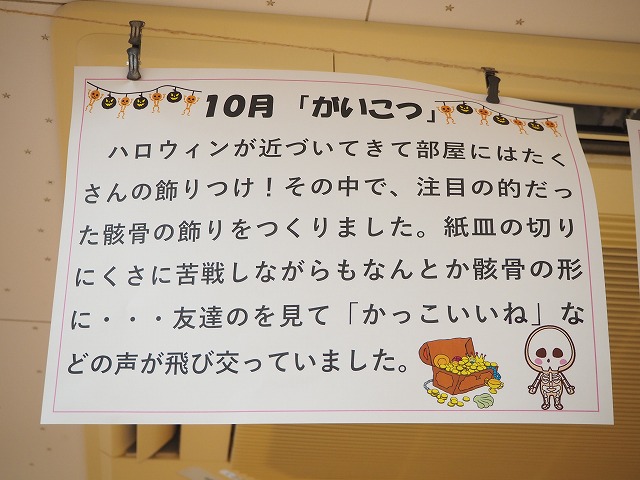 10月 「がいこつ」
ハロウィンが近づいてきて部屋にはたく
さんの飾りつけ！その中で、注目の的だっ
た骸骨の飾りをつくりました。紙皿の切り
にくさに苦戦しながらもなんとか骸骨の形
に・・・友達のを見て「かっこいいね」な
どの声が飛び交っていました。